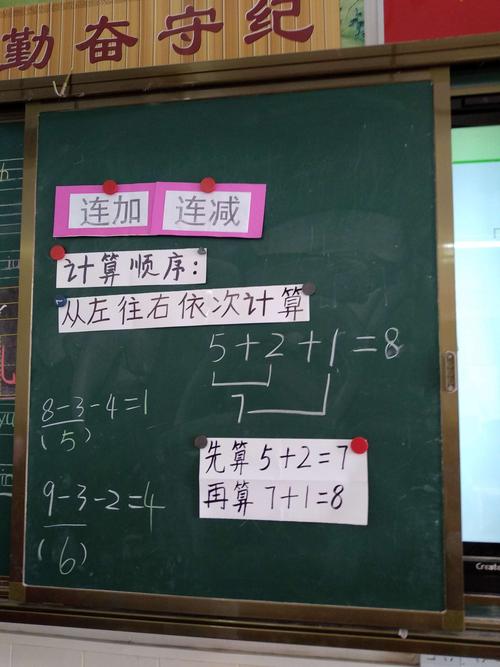 勤奋守纪
连加 连减
计算顺序：
从左往右依次计算
5+2+1=8
7
8-3-4=1
(5)
先算5+2=7
再算7+1=8
9-3-2=4
(6)